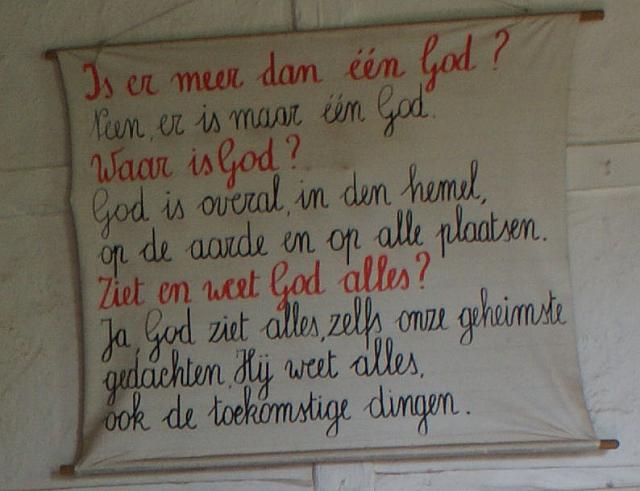 Is er meer dan één God ?
Neen, er is maar één God.
Waar is God ?
God is overal, in den hemel,
op de aarde en op alle plaatsen.
Ziet en weet God alles ?
Ja, God ziet alles, zelfs onze geheimste
gedachten. Hij weet alles,
ook de toekomstige dingen.